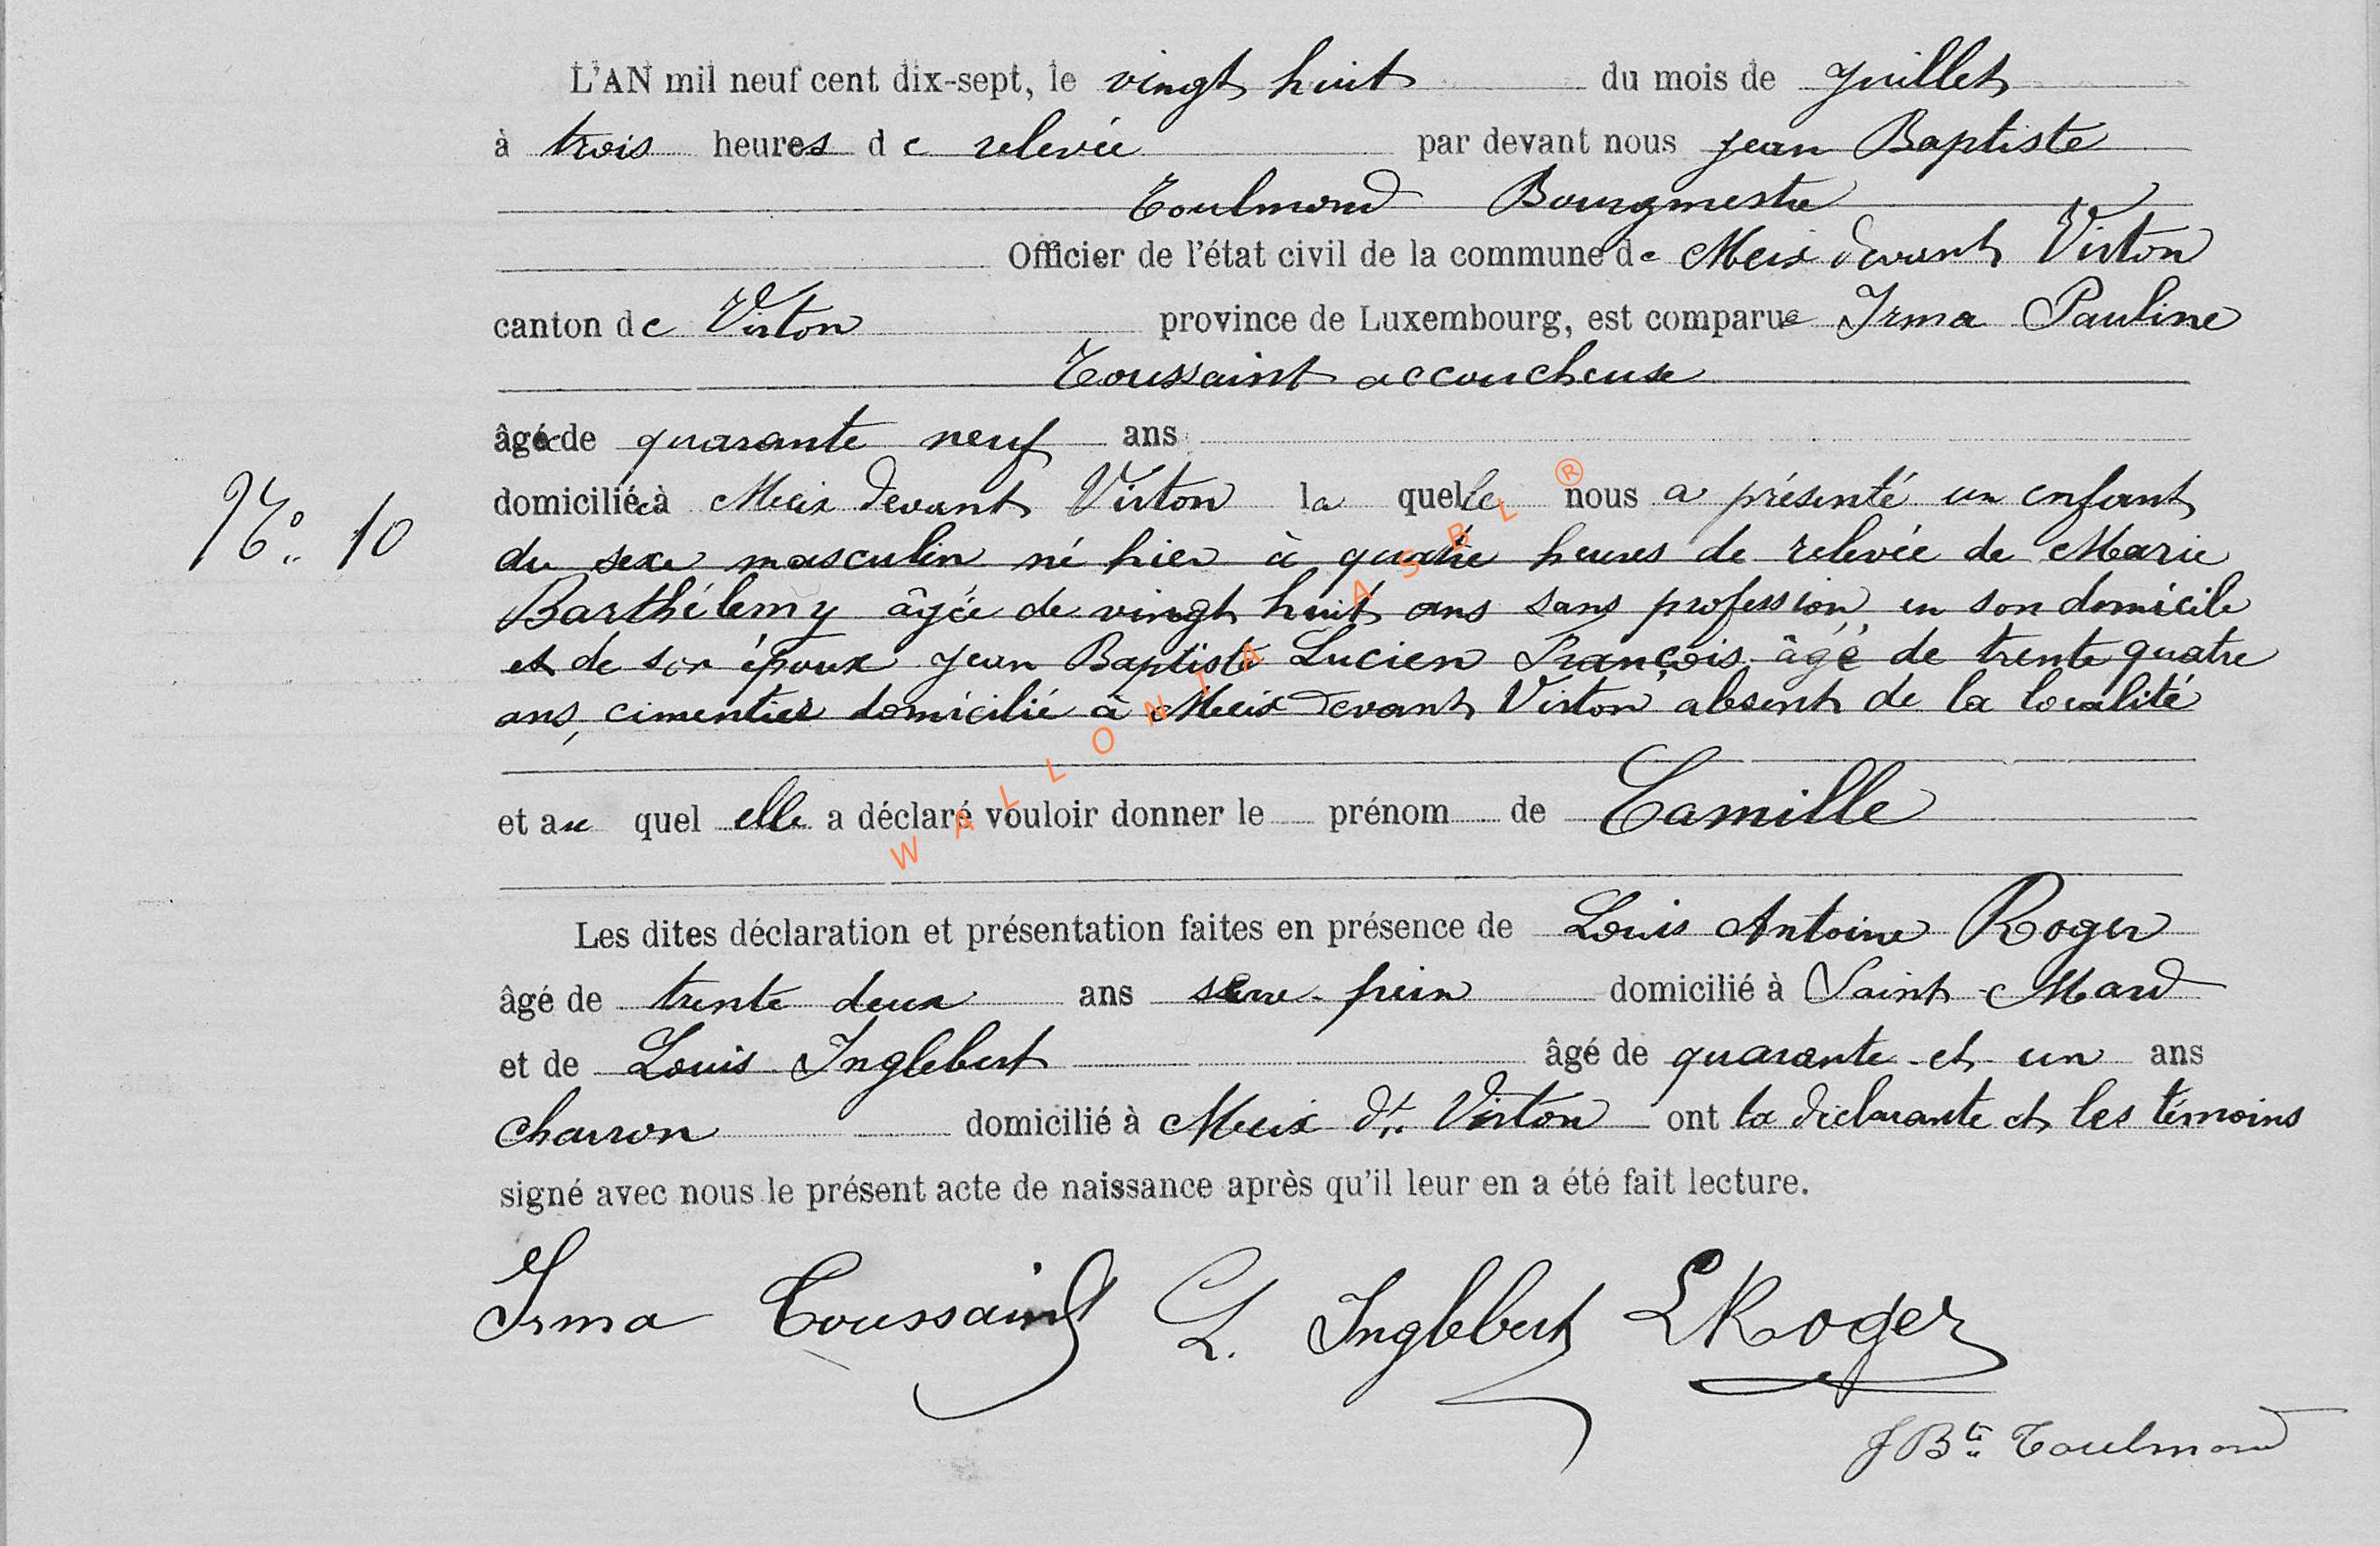 L'AN mil neuf cent dix-sept, le vingt huit du mois de Juillet
à trois heures de relevée par devant nous Jean Baptiste
Toulmond Bourgmestre
Officier de l'état civil de la commune de Meix devant Virton
canton de Virton province de Luxembourg, est comparue Irma Pauline
Toussaint accoucheuse
âgée de quarante neuf ans
N° 10
domiciliée à Meix devant Virton la quelle nous a présenté un enfant
du sexe masculin né hier à quatre heures de relevée de Marie
Barthélemy âgée de vingt huit ans sans profession, en son domicile
et de son époux Jean Baptiste Lucien François, âgé de trente quatre
ans, cimentier domicilié à Meix devant Virton, absent de la localité
et au quel elle a déclaré vouloir donner le prénom de Camille
Les dites déclaration et présentation faites en présence de Louis Antoine Roger
âgé de trente deux ans serre-frein domicilié à Saint-Mard
et de Louis Inglebert âgé de quarante et un ans
charron domicilié à Meix dt Virton ont la déclarante et les témoins
signé avec nous le présent acte de naissance après qu'il leur en a été fait lecture.
Irma Toussaint L. Inglebert L Roger
J Bte Toulmond
WALLONIA ASBL ®